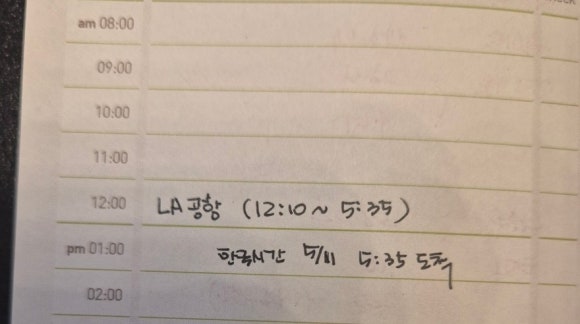 am 08:00
09:00
10:00
11:00
12:00 LA 공항 (12:10 ~ 5:35)
pm 01:00 한국시간 5/11 5:35 도착
02:00